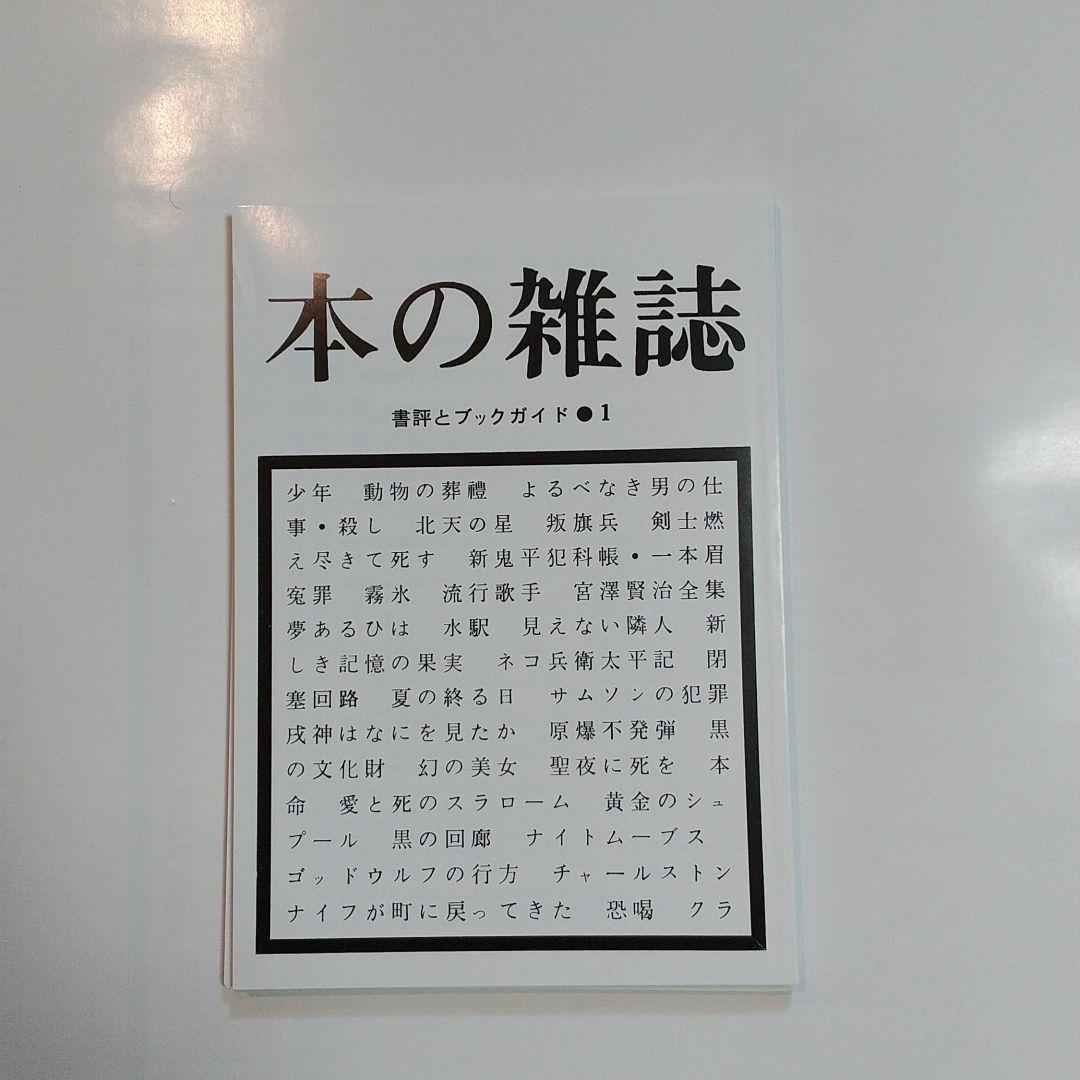 本の雑誌
書評とブックガイド●1
少年　動物の葬禮　よるべなき男の仕
事・殺し　北天の星　叛旗兵　剣士燃
え尽きて死す　新鬼平犯科帳・一本眉
冤罪　霧氷　流行歌手　宮澤賢治全集
夢あるひは　水駅　見えない隣人　新
しき記憶の果実　ネコ兵衛太平記　閉
塞回路　夏の終る日　サムソンの犯罪
戌神はなにを見たか　原爆不発弾　黒
の文化財　幻の美女　聖夜に死を　本
命　愛と死のスラローム　黄金のシュ
プール　黒の回廊　ナイトムーブス
ゴッドウルフの行方　チャールストン
ナイフが町に戻ってきた　恐喝　クラ